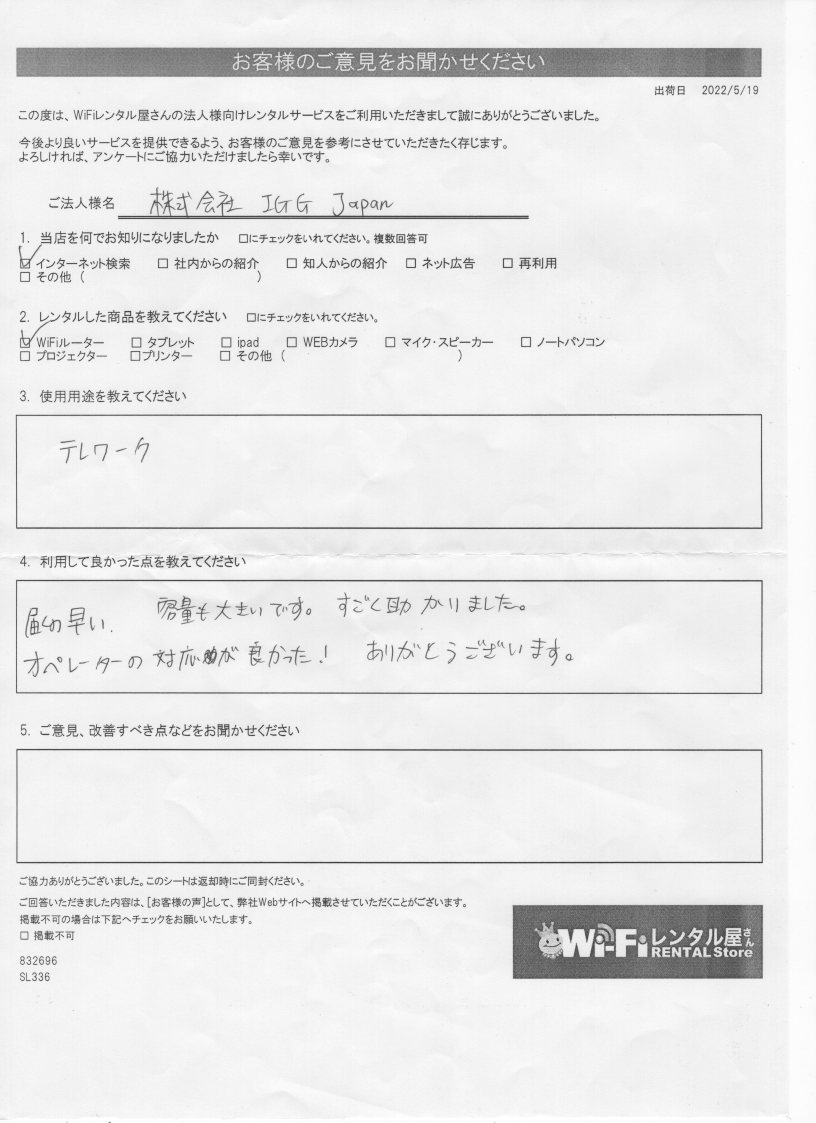 お客様のご意見をお聞かせください
出荷日 2022/5/19
この度は、WiFiレンタル屋さんの法人様向けレンタルサービスをご利用いただきまして誠にありがとうございました。
今後より良いサービスを提供できるよう、お客様のご意見を参考にさせていただきたく存じます。
よろしければ、アンケートにご協力いただけましたら幸いです。
ご法人様名 株式会社 IGG Japan
1. 当店を何でお知りになりましたか □にチェックをいれてください。複数回答可
☑ インターネット検索 □ 社内からの紹介 □ 知人からの紹介 □ ネット広告 □ 再利用
□ その他 ( )
2. レンタルした商品を教えてください □にチェックをいれてください。
☑ WiFiルーター □ タブレット □ ipad □ WEBカメラ □ マイク・スピーカー □ ノートパソコン
□ プロジェクター □プリンター □ その他 ( )
3. 使用用途を教えてください
テレワーク
4. 利用して良かった点を教えてください
届くの早い. 容量も大きいです。 すごく助かりました。
オペレーターの対応が良かった! ありがとうございます。
5. ご意見、改善すべき点などをお聞かせください
ご協力ありがとうございました。このシートは返却時にご同封ください。
ご回答いただきました内容は、[お客様の声]として、弊社Webサイトへ掲載させていただくことがございます。
掲載不可の場合は下記へチェックをお願いいたします。
□ 掲載不可
832696
SL336
Wi-Fiレンタル屋さん
RENTAL Store